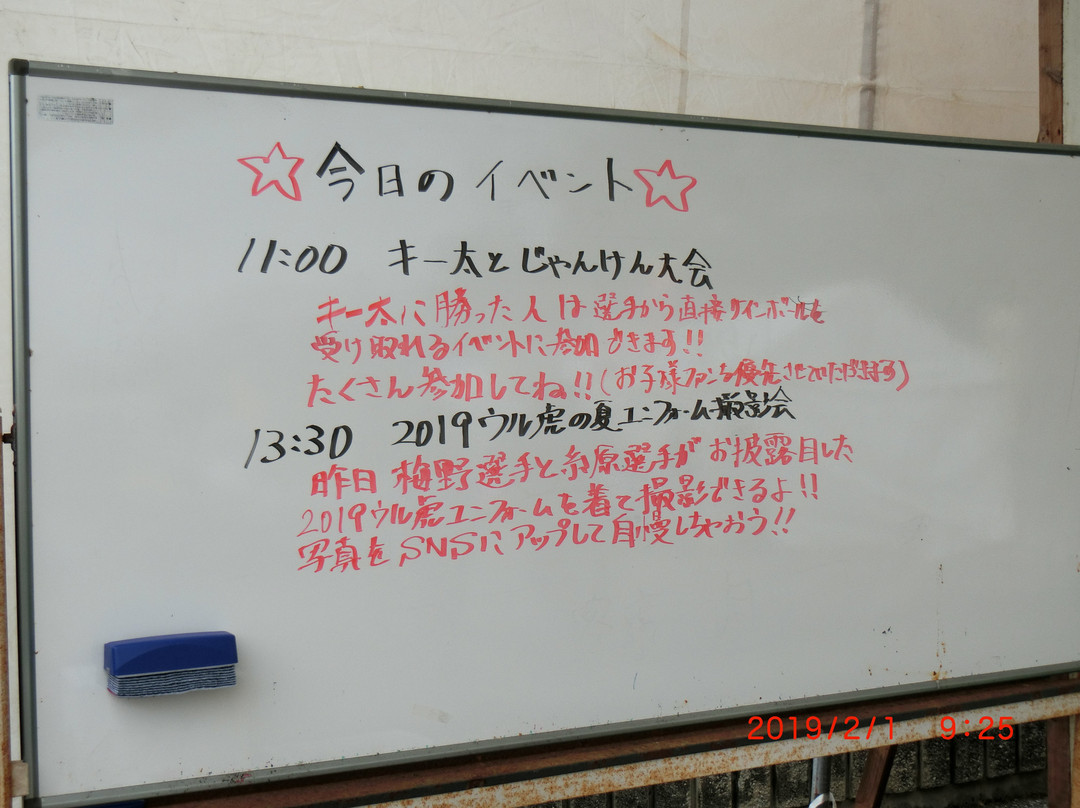 ☆今日のイベント☆
11:00 キー太とじゃんけん大会
キー太に勝った人は選手から直接サインボールを
受け取れるイベントに参加できます!!
たくさん参加してね!!(お子様ファンを優先させていただきます)
13:30 2019ウル虎の夏ユニフォーム撮影会
昨日 梅野選手と糸原選手がお披露目した
2019ウル虎ユニフォームを着て撮影できるよ!!
写真をSNSにアップして自慢しちゃおう!!
2019/2/1 9:25